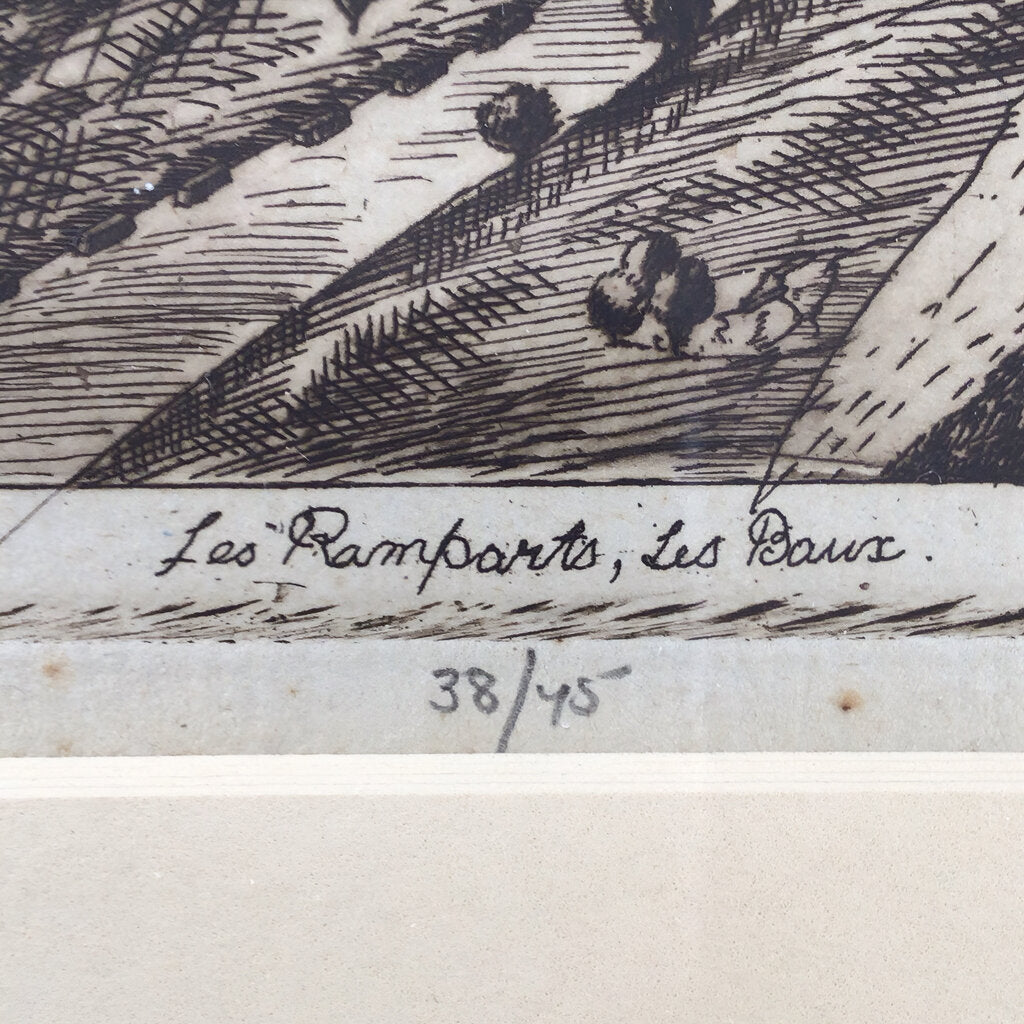 Les Ramparts, Les Baux.
38/45